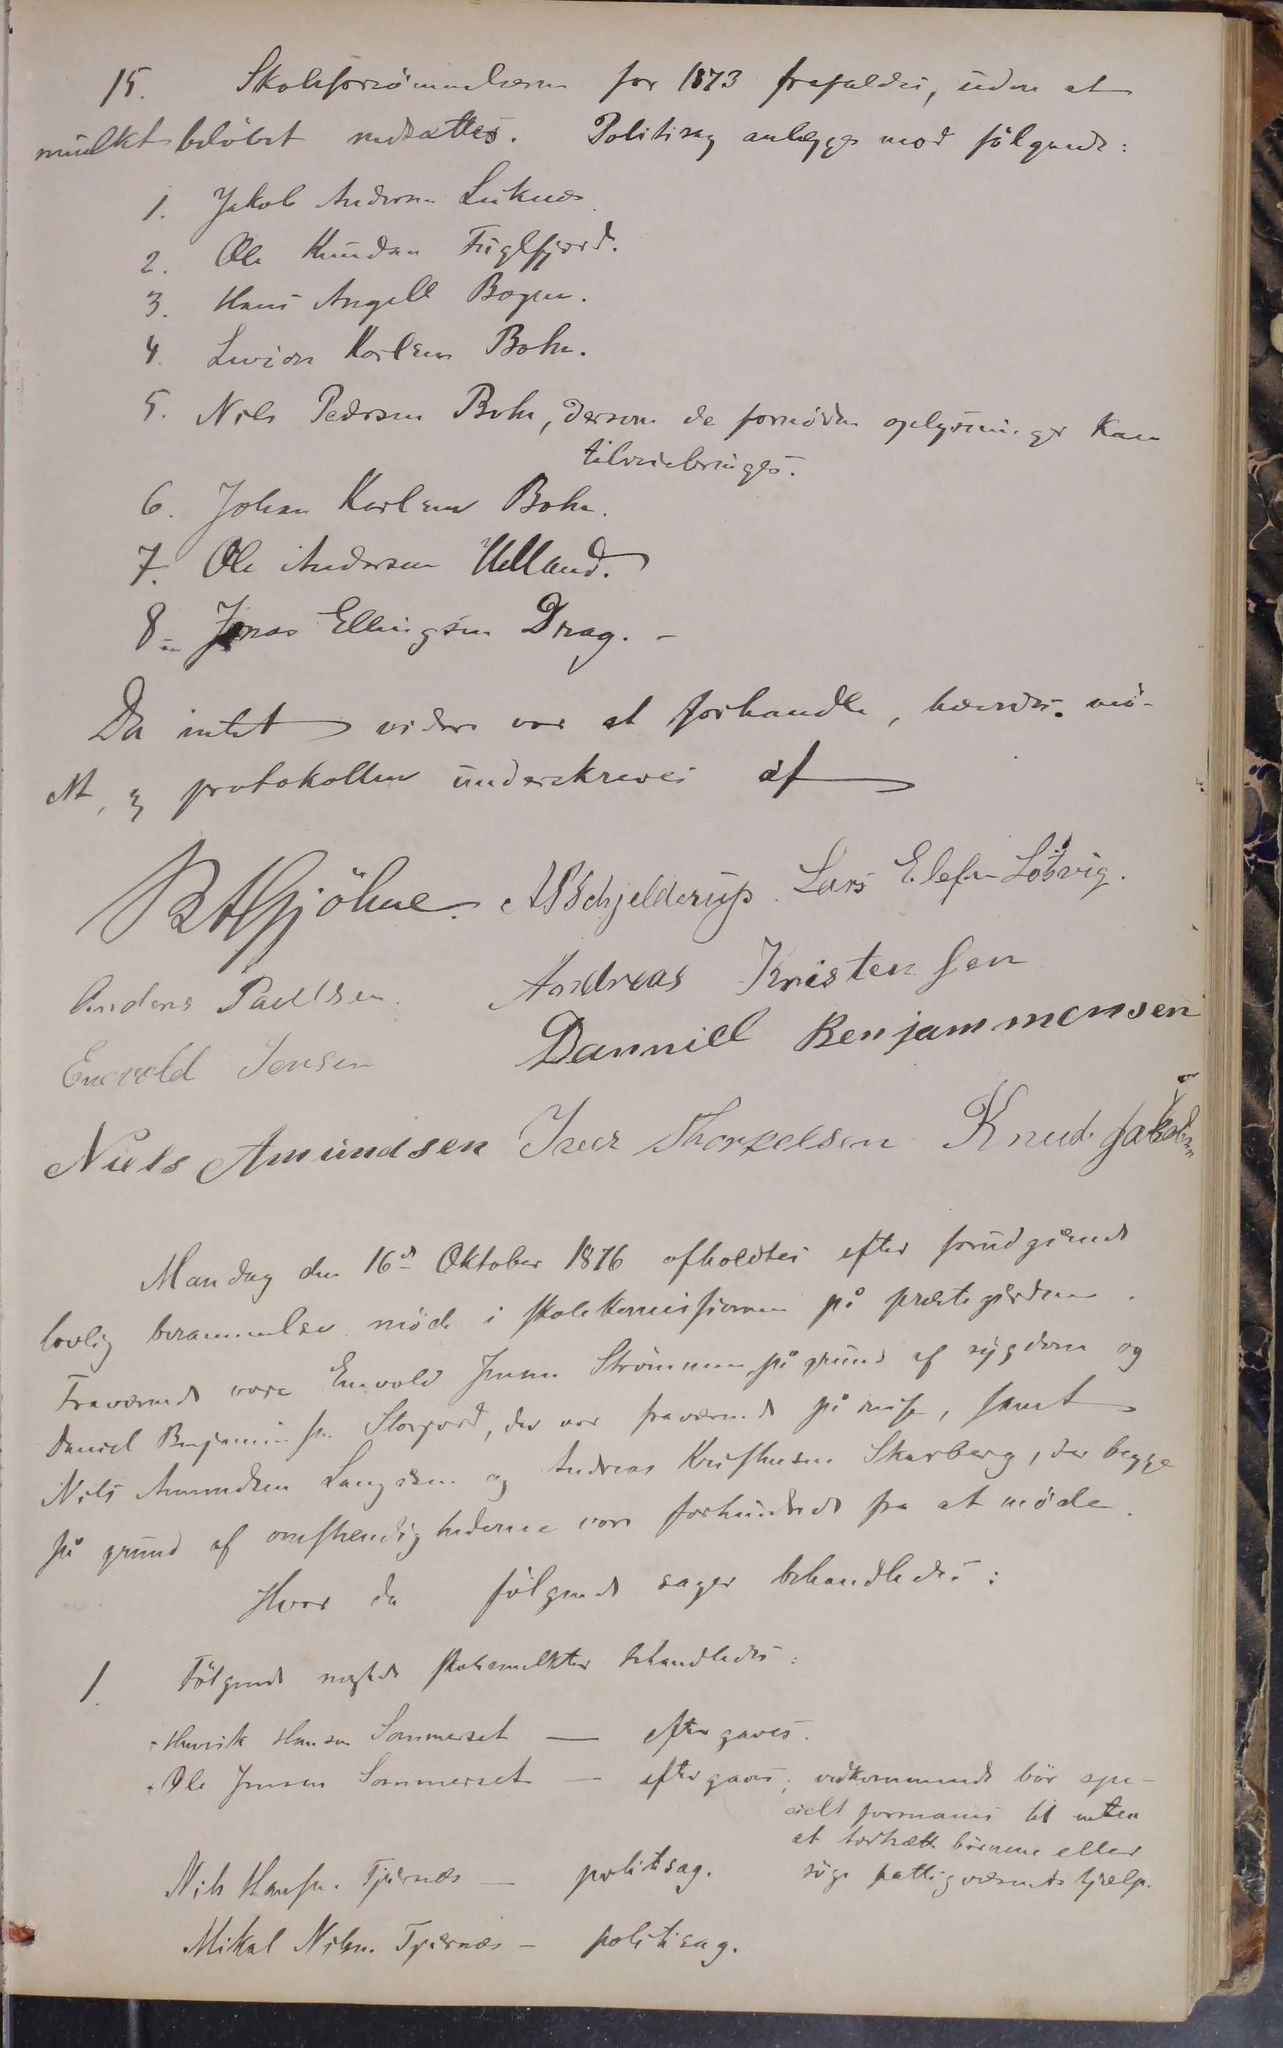 15. Skoleforsömmelserne for 1873 frafaldes, uden at
mulktbelöbet nedsættes. Politisag anlægges mod fölgende:
1. Jakob Andersen Leknes
2. Ole Knudsen Fuglfjord.
3. Hans Angell Bogen.
4. Karlsen Bohn.
5. Nils Pedersen Bohn, dersom de fornödne oplysninger kan
tilveiebringes.
6. Johan Karlsen Bohn.
7. Ole Andersen Helland.
8 Jonas Ellingsen Drag. -
Da intet videre var at forhandle, hævdes mö-
det, og protokollen underskreves af
AB Schjelderup. Lars Elefsen Lösvig.
Anders Paulsen. Andreas Kristensen
Enevold Jensen Danniel Benjammensen
Niels Amundsen Iver Thorkelsen Knud Jakobsen
Mandag den 16de Oktober 1876 afholdtes efter forudgående
lovlig berammelse möde i skolekommissionen på præstegården.
Fraværende vare Enevold Jensen Strömmen på grund af sygdom og
Daniel Benjaminsen Storjord, der var fraværende på reise, samt
Nils Amundsen Langåsen og Andreas Kristensen Skarberg, der begge
på grund af omstændighederne vare forhindrede fra at möde.
Hvor da fölgende sager behandledes:
1. Fölgende nægtede skolemulkter behandledes:
Henrik Hansen Sommerset — eftergaves.
Ole Jensen Sommerset — eftergaves; vedkommende bör spe-
cielt formanes til enten
at börnene eller
söge fattigvæsenets hjælp.
Nils Hansen Tjernæs — politisag.
Mikal Nilsen Tjernæs — politisag.